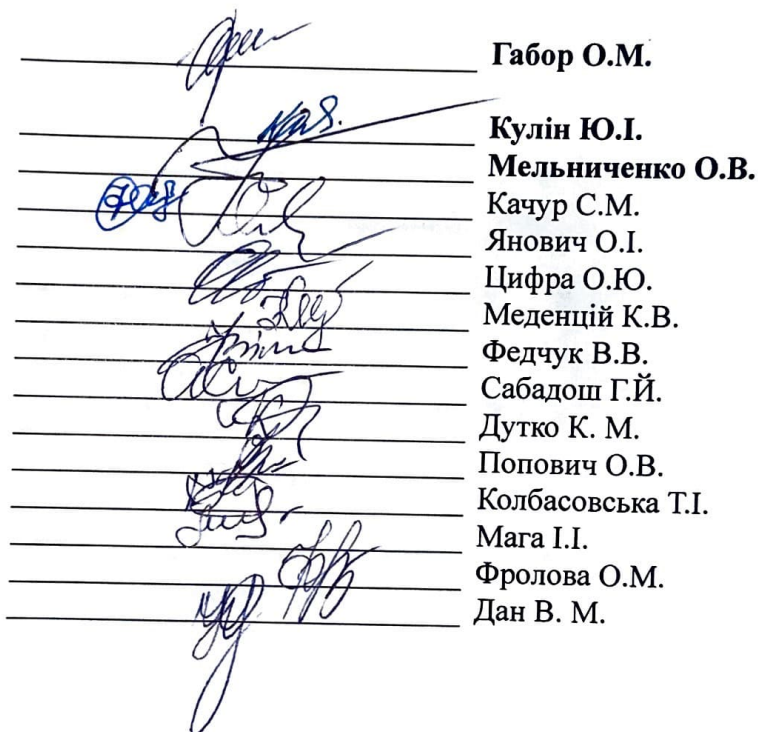 Габор О.М.
Кулін Ю.І.
Мельниченко О.В.
Качур С.М.
Янович О.І.
Цифра О.Ю.
Меденцій К.В.
Федчук В.В.
Сабадош Г.Й.
Дутко К. М.
Попович О.В.
Колбасовська Т.І.
Мага І.І.
Фролова О.М.
Дан В. М.